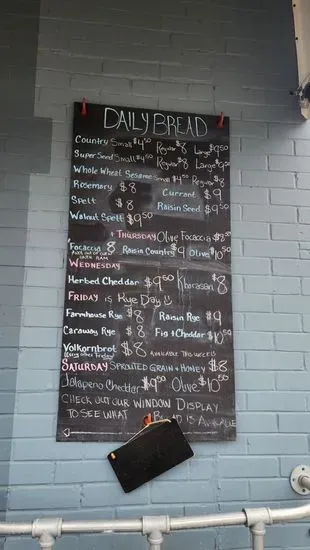 DAILY BREAD
Country Small $4.50 Regular $8 Large $9.50
Super Seed Small $4.50 Regular $8 Large $9.50
Whole Wheat Sesame Small $4.50 Regular $8
Rosemary $8 Currant $9
Spelt $8 Raisin Seed $9.50
Walnut Spelt $9.50
+ THURSDAY Olive Focaccia $8.50
Focaccia $8 Raisin Country $9 Olive $10.50
WEDNESDAY
Herbed Cheddar $9.50 Khorasan $8
FRIDAY is Rye Day
Farmhouse Rye $8 Raisin Rye $9
Caraway Rye $8 Fig + Cheddar $10.50
Volkornbrot $8
(Every other Friday) AVAILABLE THIS WEEK
SATURDAY SPROUTED GRAIN + HONEY $8
Jalapeno Cheddar $9.00 Olive $10.50
CHECK OUT OUR WINDOW DISPLAY
TO SEE WHAT BREAD IS AVAILABLE